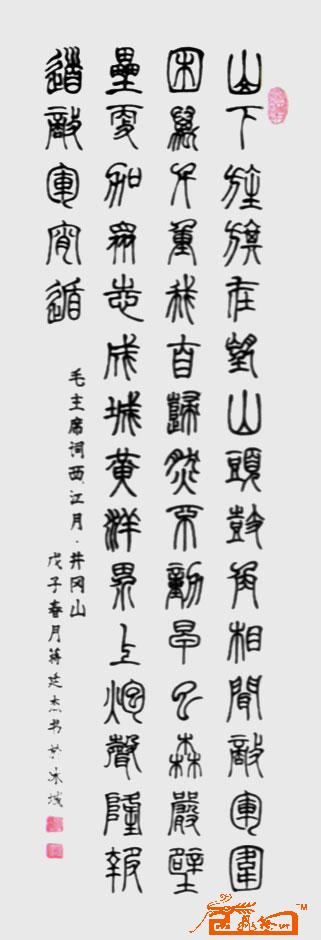 山下旌旗在望山頭鼓角相聞敵軍圍
困萬千重我自歸然不動早已森嚴壁
壘更加眾志成城黃洋界上炮聲隆報
道敵軍宵遁
毛主席词西江月·井冈山
戊子春月蒋廷杰书於冰城